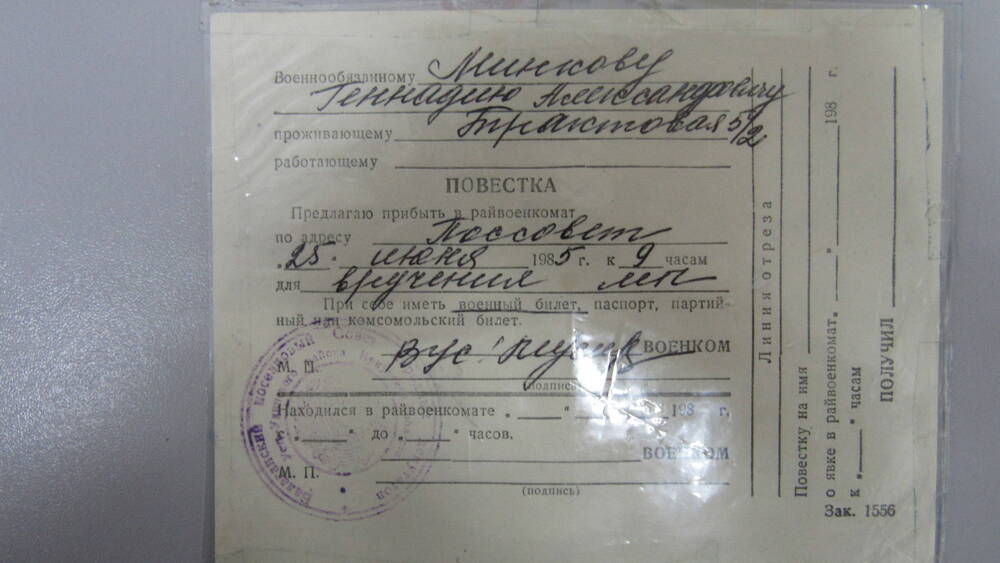 Военнообязанному Минкову
Геннадию Александровичу
проживающему Трактовая 5/2
работающему
ПОВЕСТКА
Предлагаю прибыть в райвоенкомат
по адресу Поссовет
„25" июня 1985 г. к 9 часам
для вручения
При себе иметь военный билет, паспорт, партий-
ный или комсомольский билет.
М. П. ВУС ВОЕНКОМ
(подпись)
Находился в райвоенкомате „ " 198 г.
с „ " до „ " часов.
М. П. ВОЕНКОМ
(подпись)
Линия отреза
Повестку на имя
о явке в райвоенкомат „ " 198 г.
к „ " часам
ПОЛУЧИЛ
Зак. 1556
поселковый Совет
депутатов